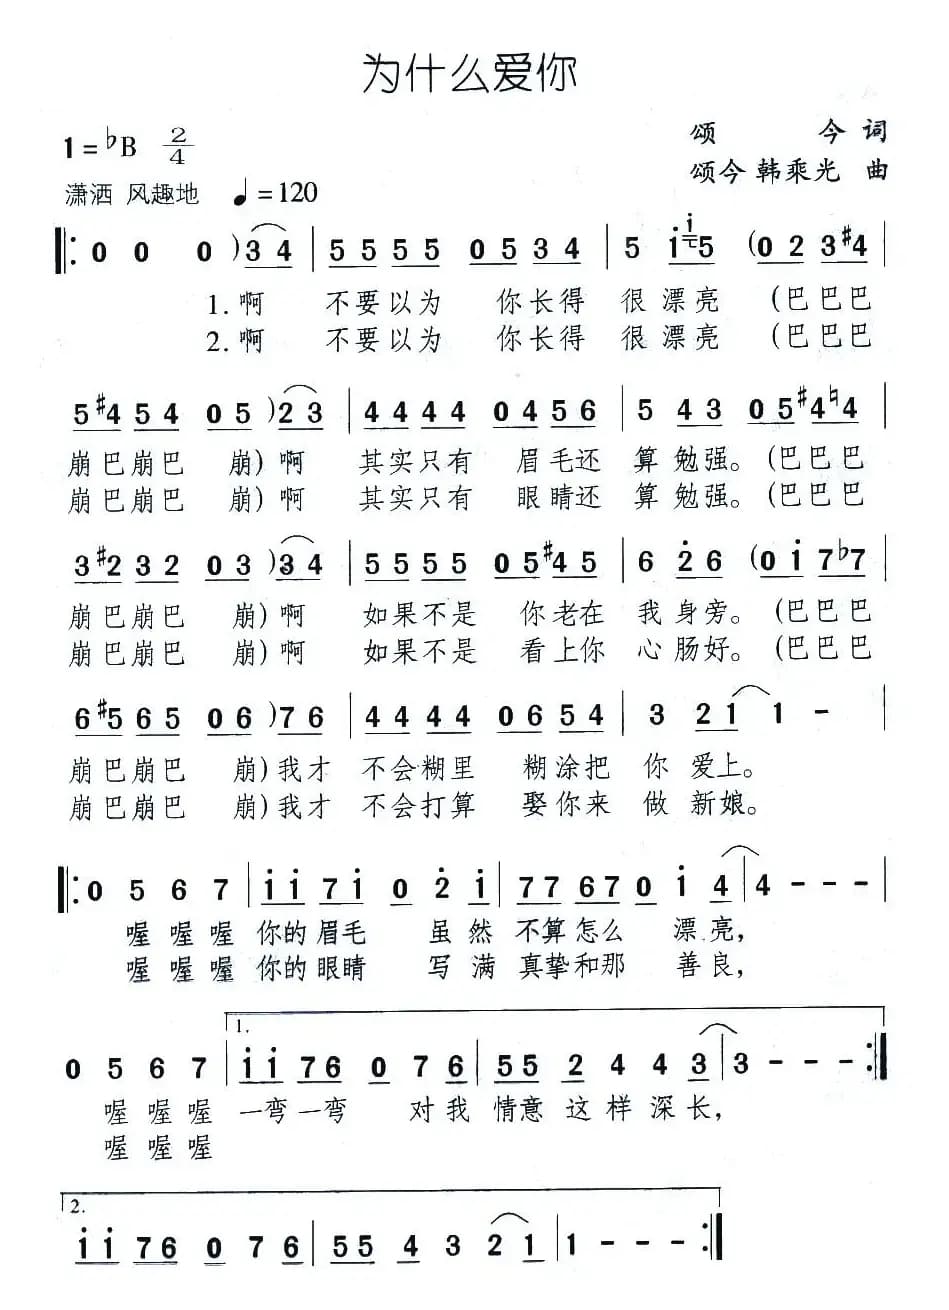 为什么爱你
1=♭B 2/4
颂 今 词
颂今 韩乘光 曲
潇洒 风趣地 ♩=120
0 0 0 )3 4 | 5 5 5 5 0 5 3 4 | 5 i i 5 (0 2 3 #4 |
1.啊 不要以为 你长得 很漂亮 (巴巴巴
2.啊 不要以为 你长得 很漂亮 (巴巴巴
5 #4 5 4 0 5 )2 3 | 4 4 4 4 0 4 5 6 | 5 4 3 0 5 #4 ♮4 |
崩巴崩巴 崩)啊 其实只有 眉毛还 算勉强。(巴巴巴
崩巴崩巴 崩)啊 其实只有 眼睛还 算勉强。(巴巴巴
3 #2 3 2 0 3 )3 4 | 5 5 5 5 0 5 #4 5 | 6 2̇ 6 (0 i 7 ♭7 |
崩巴崩巴 崩)啊 如果不是 你老在 我身旁。(巴巴巴
崩巴崩巴 崩)啊 如果不是 看上你 心肠好。(巴巴巴
6 #5 6 5 0 6 )7 6 | 4 4 4 4 0 6 5 4 | 3 2 1 1 - |
崩巴崩巴 崩)我才 不会糊里 糊涂把 你爱上。
崩巴崩巴 崩)我才 不会打算 娶你来 做新娘。
0 5 6 7 | i i 7 i 0 2̇ i | 7 7 6 7 0 i 4 | 4 - - - |
喔喔喔 你的眉毛 虽然 不算怎么 漂亮,
喔喔喔 你的眼睛 写满 真挚和那 善良,
1.
0 5 6 7 | i i 7 6 0 7 6 | 5 5 2 4 4 3 | 3 - - - :|
喔喔喔 一弯一弯 对我 情意这样深长,
喔喔喔
2.
i i 7 6 0 7 6 | 5 5 4 3 2 1 | 1 - - - :|